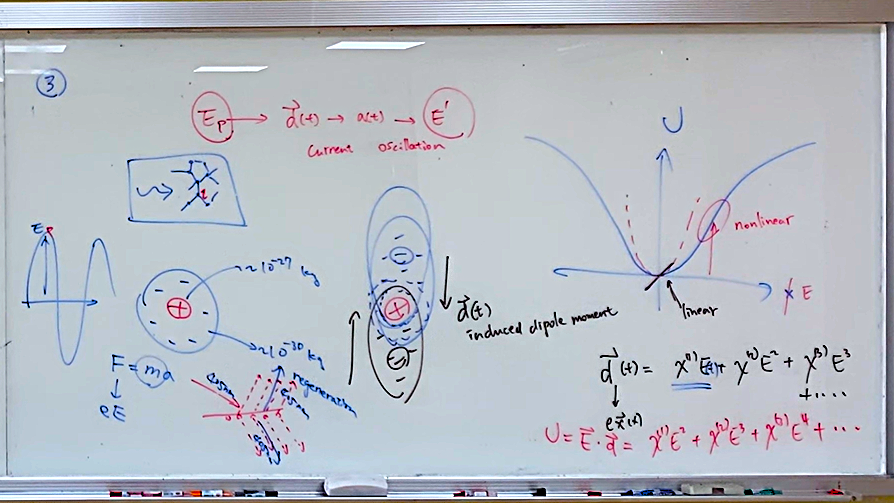 ③
E_p → d⃗(t) → a(t) → E'
Current oscillation
E_p
~10^-27 kg
~10^-30 kg
F = ma
eE
regeneration
d⃗(t)
induced dipole moment
U
nonlinear
linear
x E
d⃗(t) = χ^(1)E(t) + χ^(2)E^2 + χ^(3)E^3
+ ....
e x⃗(t)
U = E⃗·d⃗ = χ^(1)E^2 + χ^(2)E^3 + χ^(3)E^4 + ...